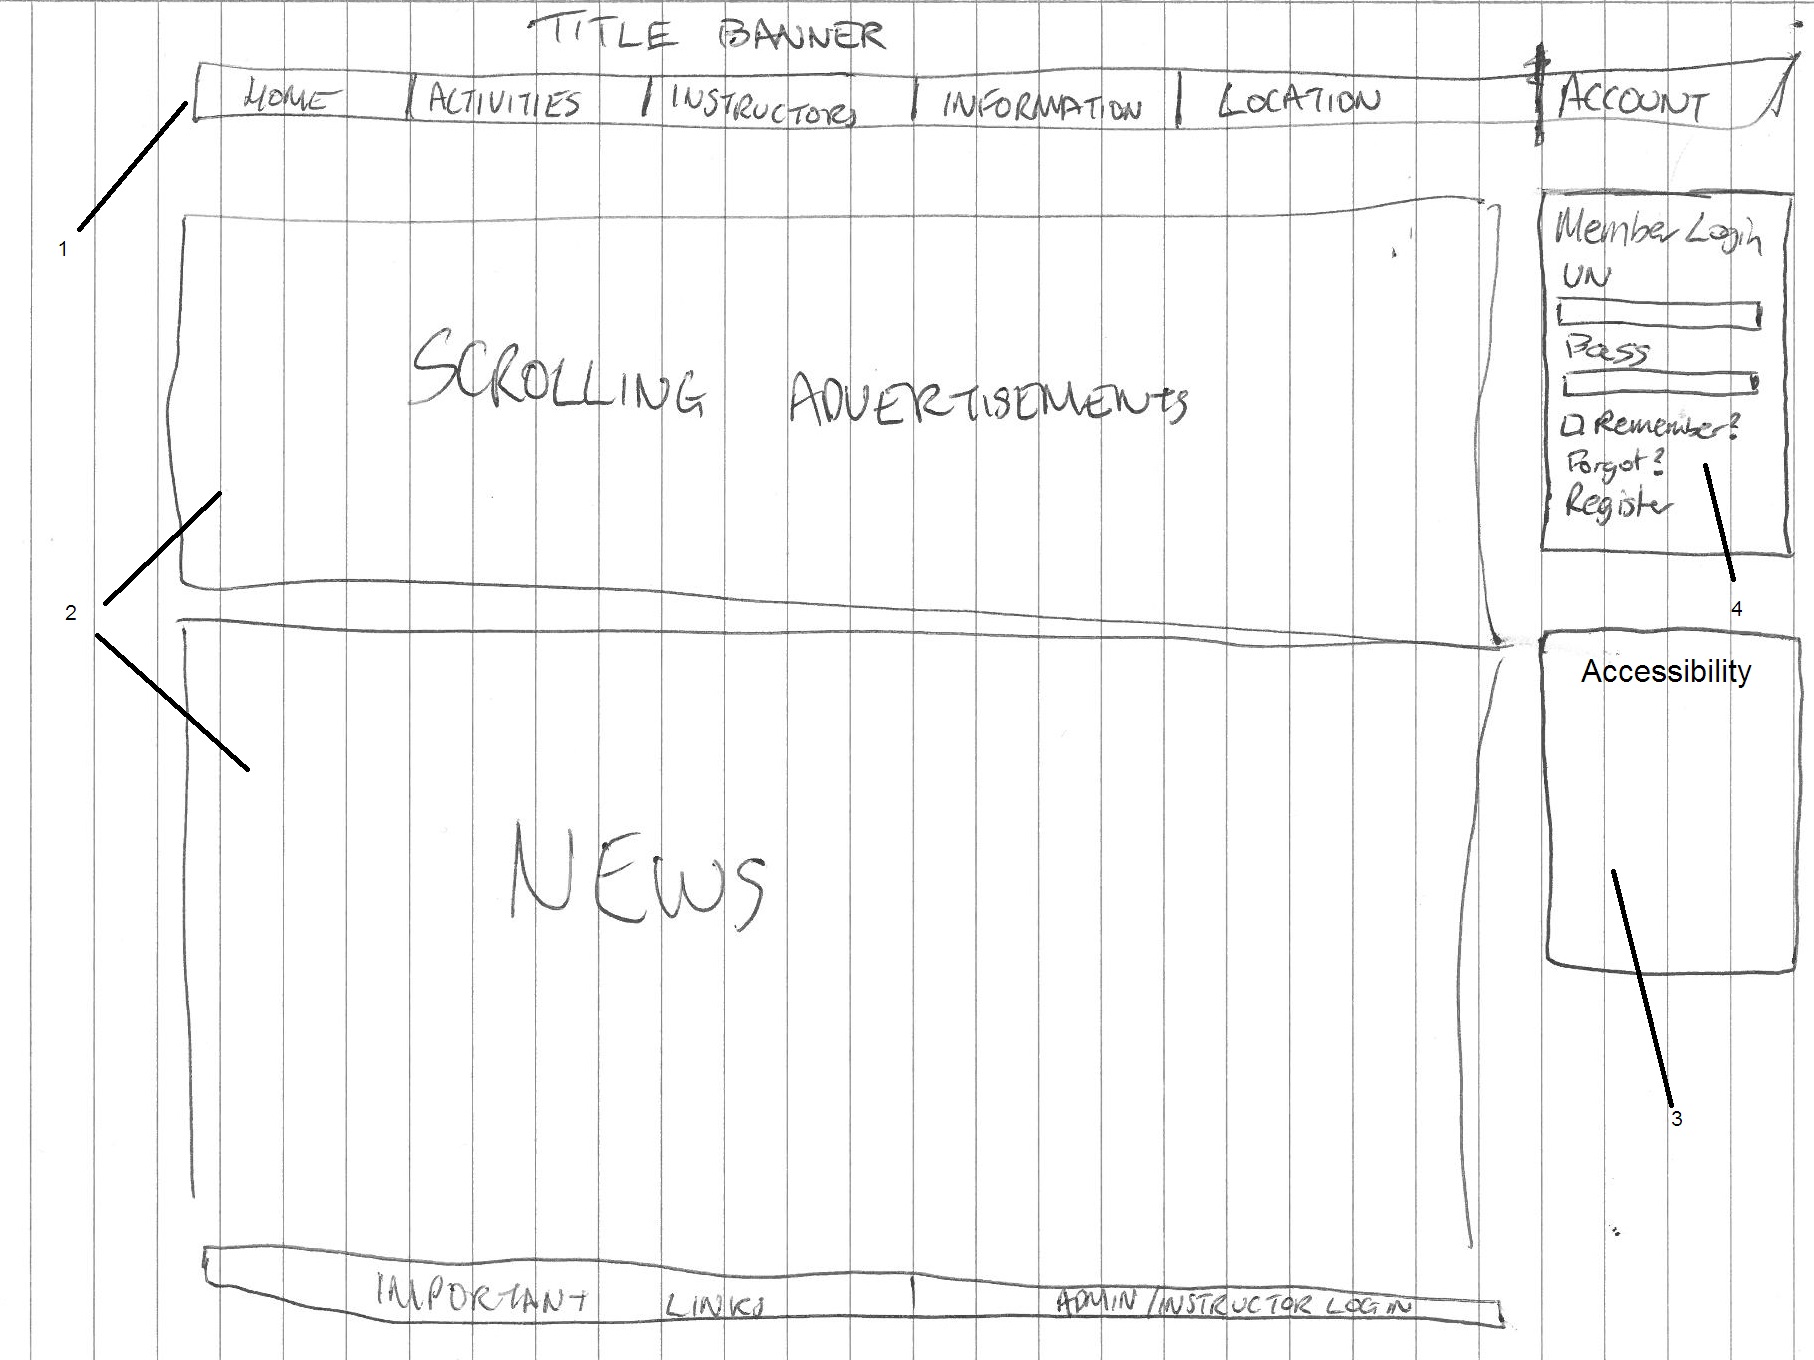 TITLE BANNER
HOME ACTIVITIES INSTRUCTORS INFORMATION LOCATION ACCOUNT
1
SCROLLING ADVERTISEMENTS
2
Member Login
UN
Pass
Remember?
Forgot?
Register
4
Accessibility
NEWS
3
IMPORTANT LINKS ADMIN/INSTRUCTOR LOGIN